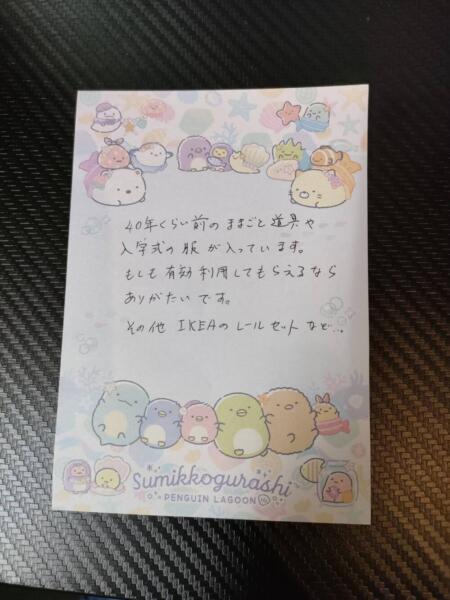 40年くらい前のままごと道具や
入学式の服が入っています。
もしも有効利用してもらえるなら
ありがたいです。
その他 IKEAのレールセットなど…
Sumikkogurashi
PENGUIN LAGOON